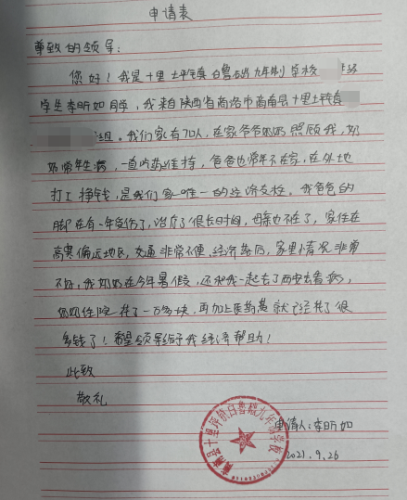 申请表
尊敬的领导：
您好！我是十里坪镇白鲁础九年制学校
学生李昕如，我来自陕西省商洛市商南县十里坪镇
组。我们家有7口人，在家爷爷奶奶照顾我，奶
奶常年生病，一直吃药维持，爸爸也常年不在家，在外地
打工挣钱，是我们家唯一的经济支柱。我爸爸的
脚在有一年受伤了，治疗了很长时间，母亲也不在了，家住在
高寒偏远地区，交通非常不便，经济落后，家里情况非常
不好，我奶奶在今年暑假，还和我一起去了西安看病，
住院花了一万多块，再加上医药费就已经花了很
多钱了！希望领导给予我经济帮助！
此致
敬礼
申请人：李昕如
2021.9.26
商南县十里坪镇白鲁础九年制学校